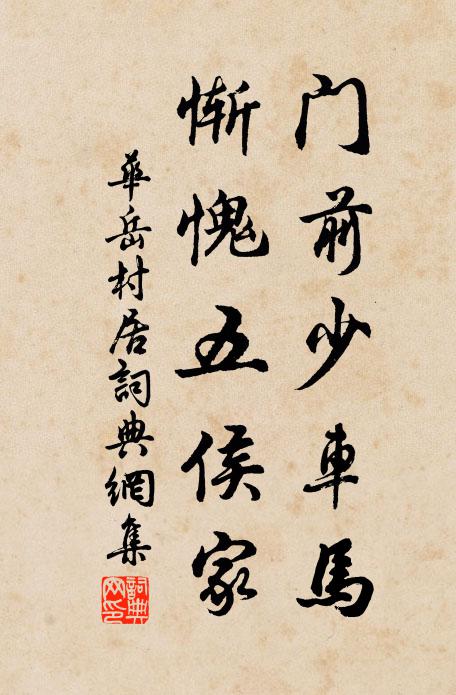 门前少車馬
惭愧五侯家
華岳村居詞典網集
詞典网印